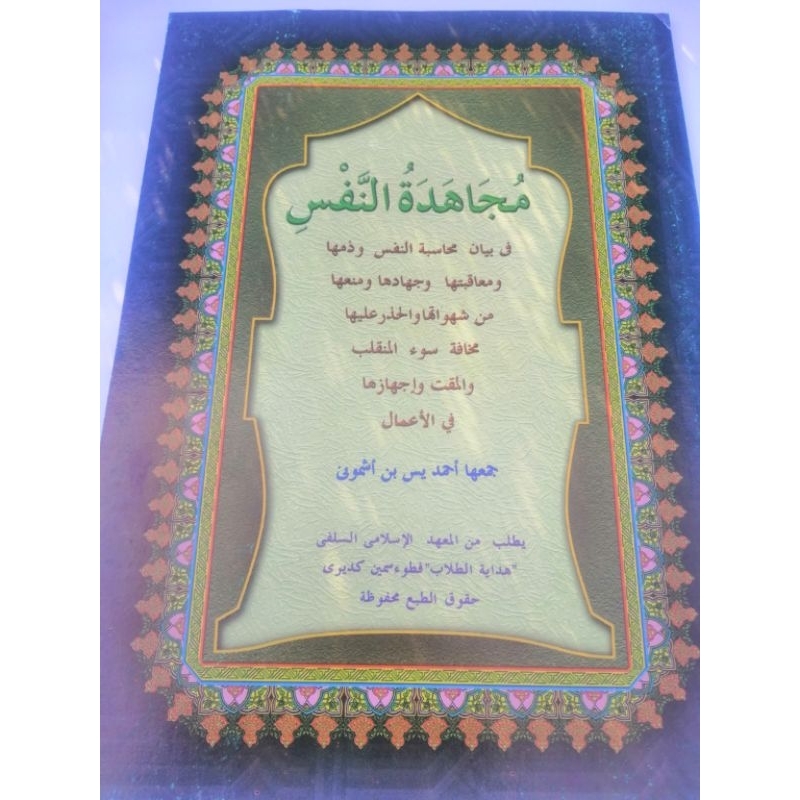 مُجَاهَدَةُ النَّفْسِ
فى بيان محاسبة النفس وذمها
ومعاقبتها وجهادها ومنعها
من شهواتها والحذر عليها
مخافة سوء المنقلب
والمقت وإجهازها
في الأعمال
جمعها أحمد يس بن أشمونى
يطلب من المعهد الإسلامى السلفى
"هداية الطلاب" فطوءسمين كديرى
حقوق الطبع محفوظة